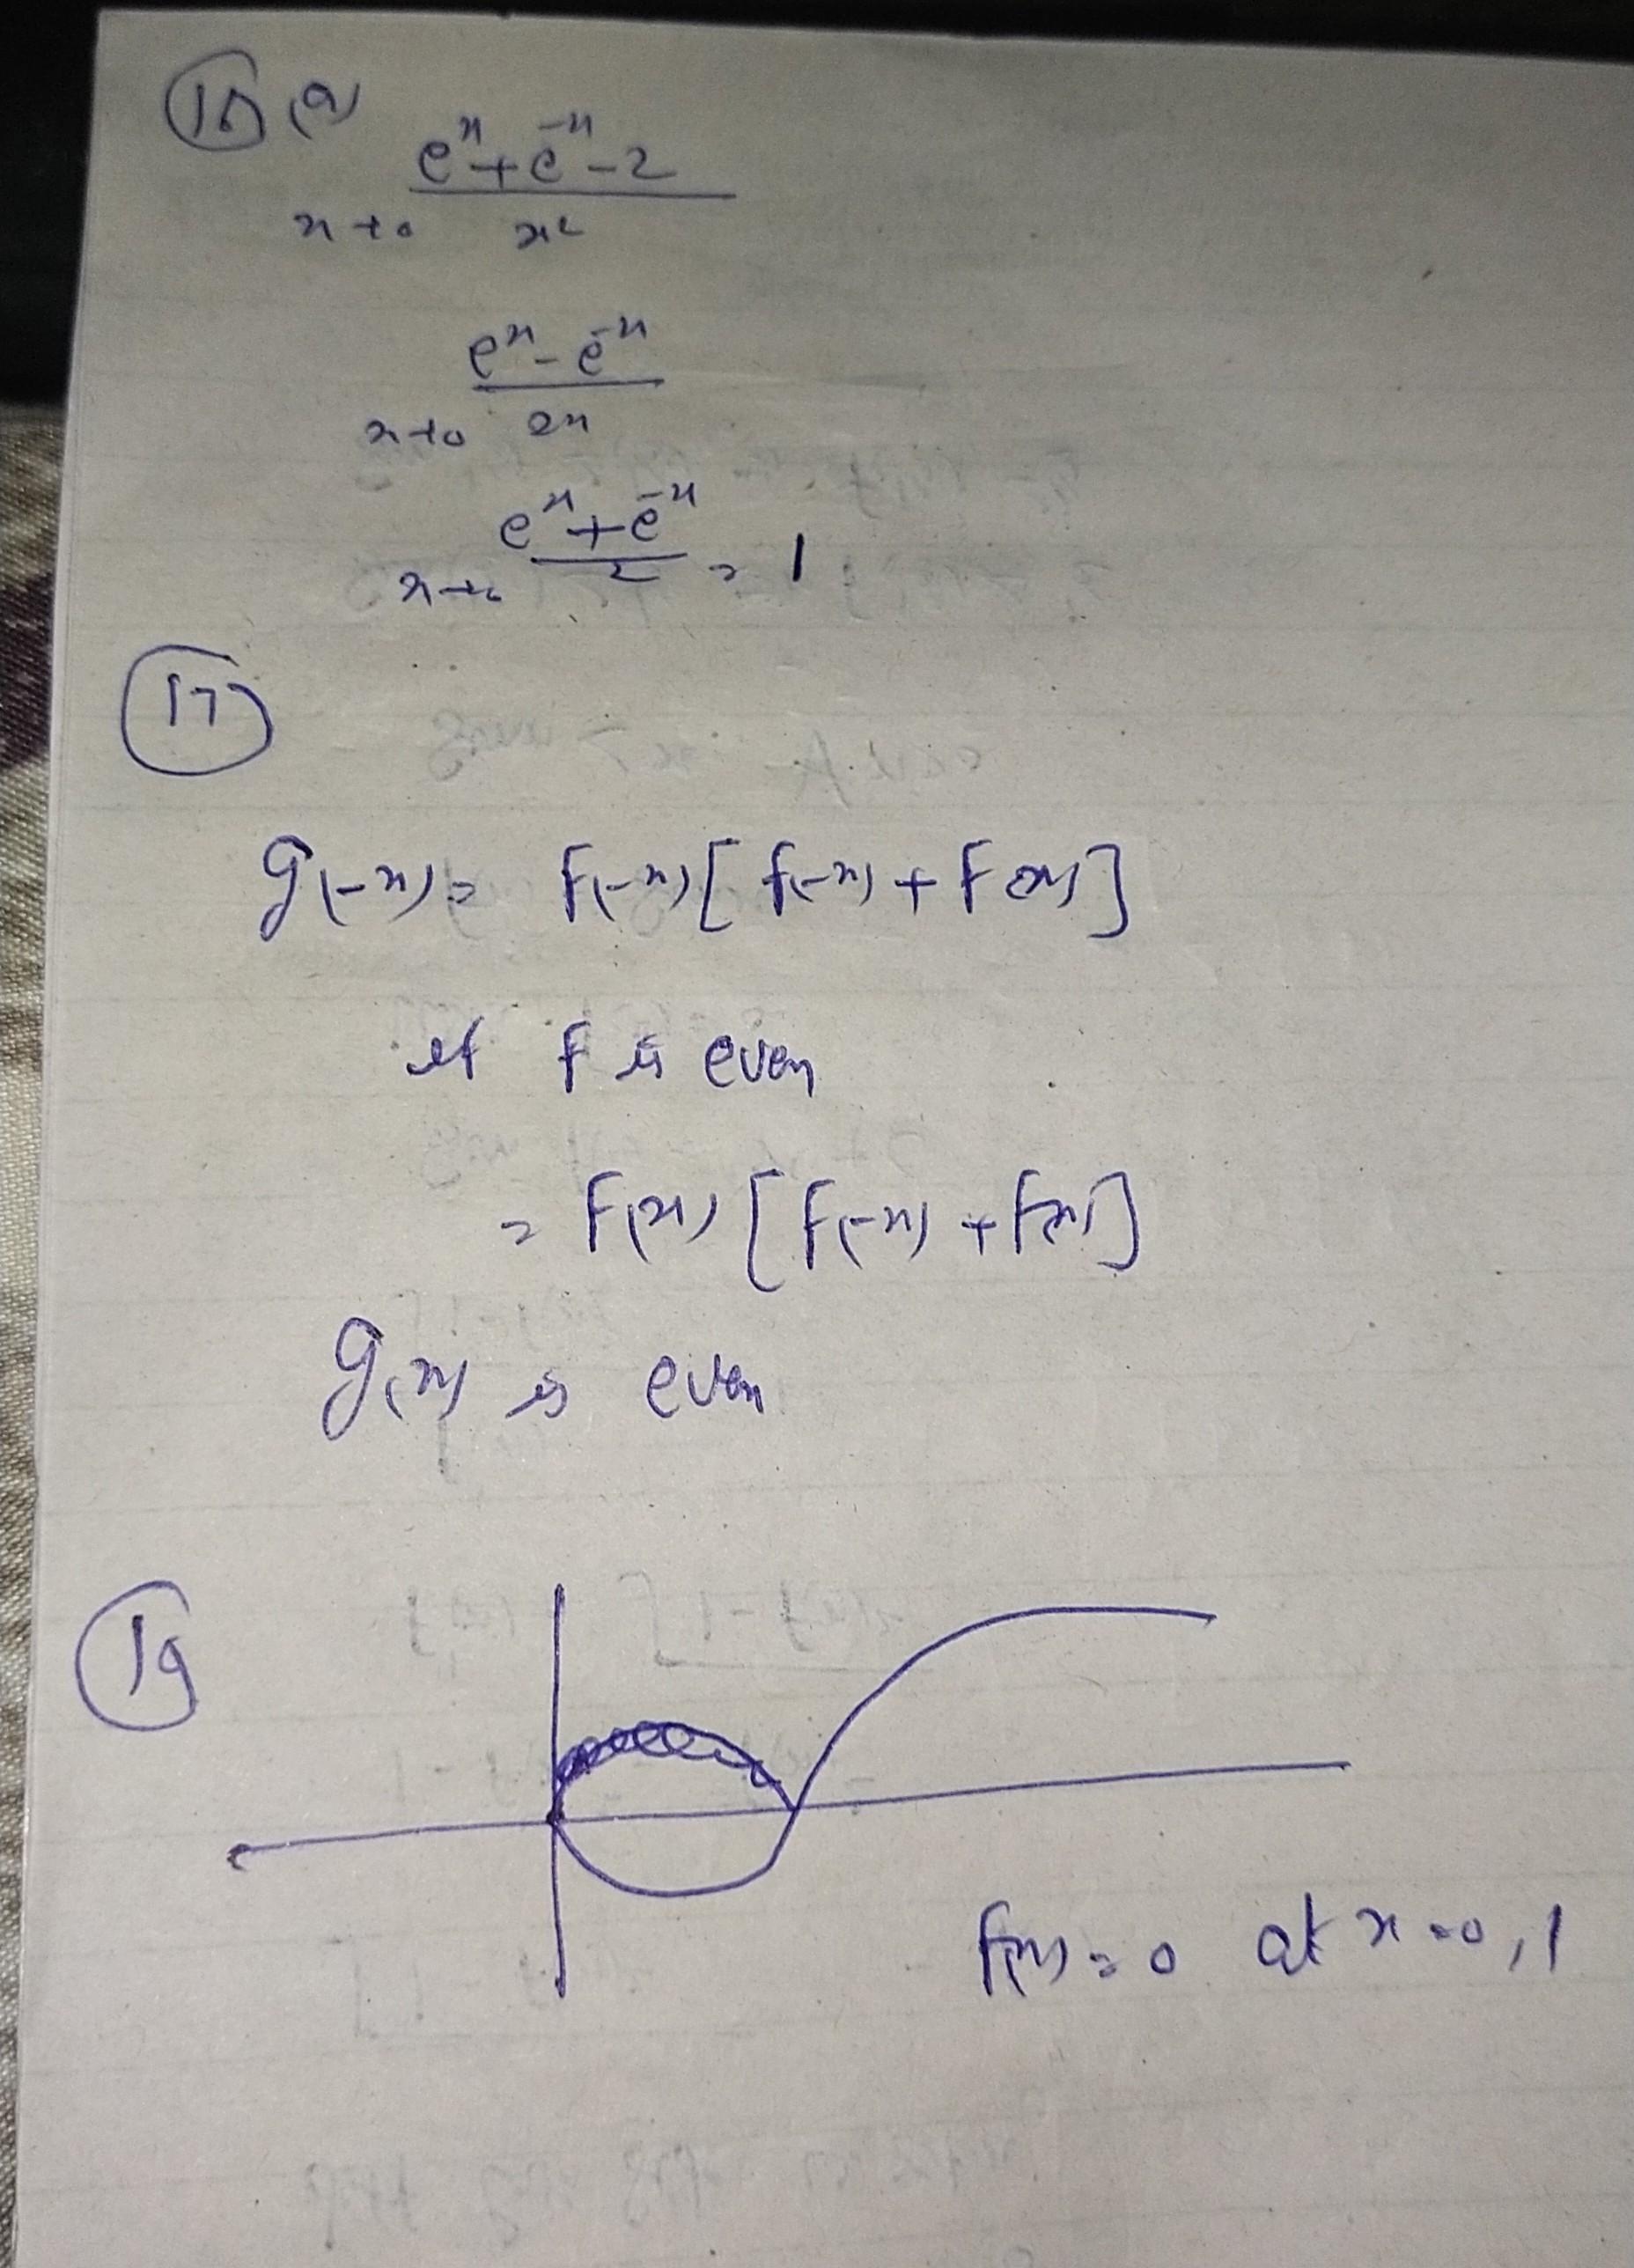 (a)
e^x + e^-x - 2
x→0 x^2
e^x - e^-x
x→0 2x
e^x + e^-x
x→0 2 = 1
17
g(-x) = f(-x) [ f(-x) + f(x) ]
if f is even
= f(x) [ f(-x) + f(x) ]
g(x) is even
19
f(x) = 0 at x = 0, 1